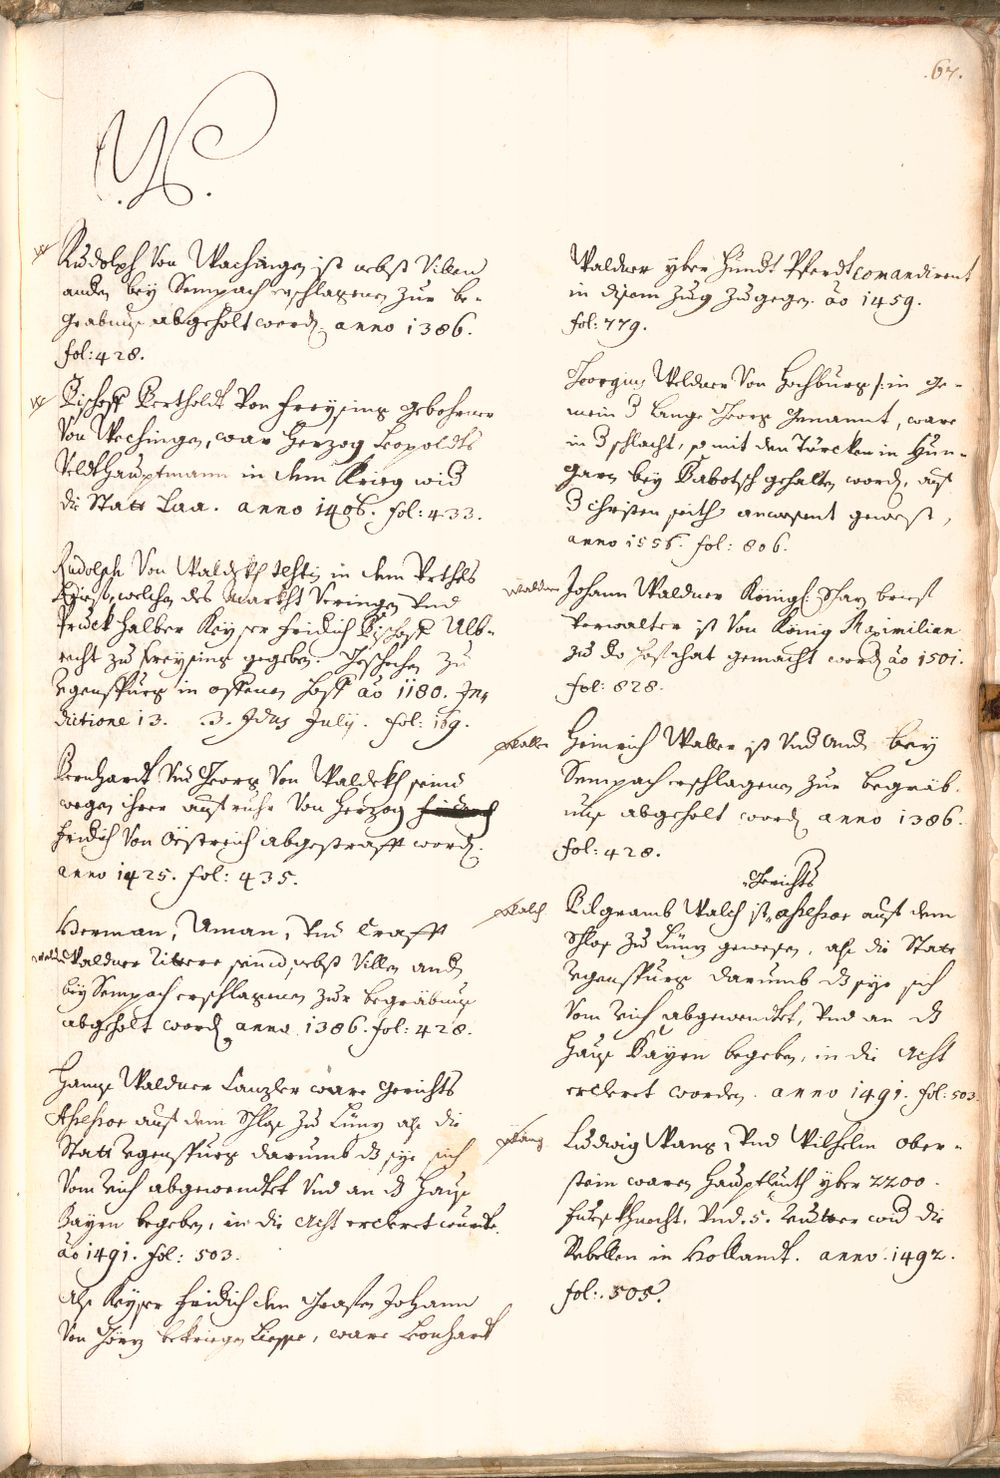 67.
W.
Rudolph Von Wachingen ist nebst Villen
anden bey Sempach erschlagenen zur be-
grabnus abgeholt word. anno 1386.
fol: 428.
Bischoff Bertholdt Von Freysing gebohrner
Von Wechingen, war Herzog Leopoldts
Veldthauptmann in dem Krieg wid
die Statt Laa. anno 1406. fol: 433.
Rudolph Von Waldekh in dem
welchen des Markht Veringen Vnd
Pruck halber Keyser Fridich Bischoff Alb-
recht zu Freysing gegeben. Geschehen zu
Regenspurg in offenen Hoff ao 1180. In-
dictione 13. 3. Idus Julij. fol: 169.
Bernhardt Vnd Georg Von Waldekh seind
wegen ihrer auffruhr Von Herzog
Fridich Von Össtreich abgestrafft word.
anno 1425. fol: 435.
Herman, Aman, Vnd Crafft
Waldner Ritter seind nebst Villen and
bey Sempach erschlagenen zur begräbnus
abgeholt word anno 1386. fol: 428.
Hanns Waldner Canzler ware Gerichts
auff dem Schloss zu Linz als die
Statt Regenspurg darumb d sye sich
Vom Reich abgewendtet Vnd an d Hauss
Bayrn begeben, in die Acht ercleret wurde.
ao 1491. fol: 503.
Als Keyser Fridich den Grafen Johann
Von Görz bekriegen liesse, ware Leonhardt
Waldner yber Hundt Pferdt comandirent
in disem Zug zu gegen. ao 1459.
fol: 779.
Georgius Waldner Von Hochburg /: in ge-
mein d Lange Georg Genannt, ware
in d schlacht, so mit den Türcken in Hun-
garn bey Babotsch gehalten word, auf
d Christen seith anwesent gewest,
anno 1556. fol: 806.
Waldner Johann Waldner Königl:
Verwalter ist Von König Maximilian
zu gemacht word ao 1501.
fol: 828.
Waller Heinrich Waller ist Vnd And bey
Sempach erschlagenen zur begräb-
nus abgeholt word anno 1386.
fol: 428.
Gerichts
Walch Pilgramb Walch ist auff dem
Schloss zu Linz gewesen, als die Statt
Regenspurg darumb d sye sich
Vom Reich abgewendtet, Vnd an d
Hauss Bayrn begeben, in die Acht
ercleret worden. anno 1491. fol: 503.
Wang Ludwig Wang, Vnd Wilhelm Ober-
stein waren Hauptleuth yber 2200.
Fuesskhnecht, Vnd. 5. Reutter wid die
Rebellen in Hollandt. anno. 1492.
fol: 505.